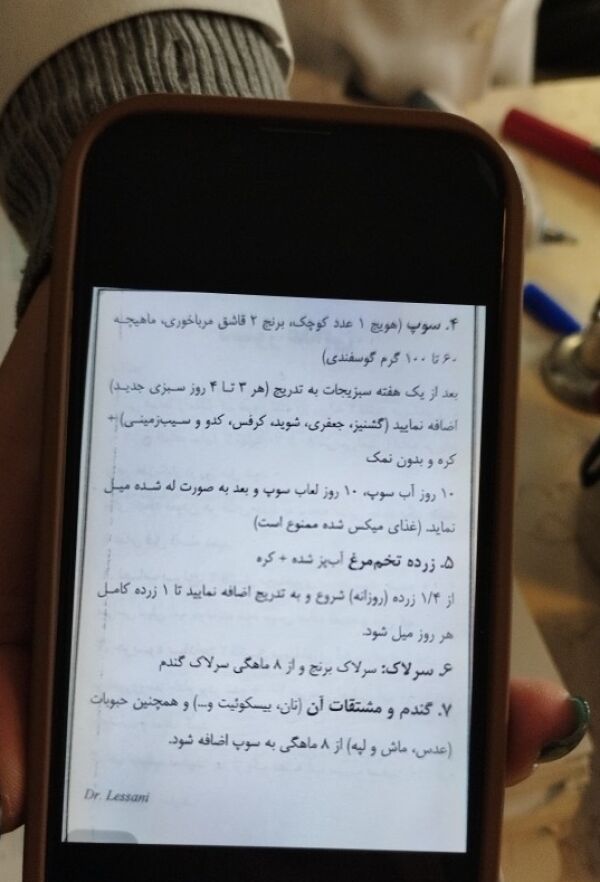 ۴. سوپ (هویج ۱ عدد کوچک، برنج ۲ قاشق مرباخوری، ماهیچـه
۶۰ تا ۱۰۰ گرم گوسفندی)
بعد از یک هفته سبزیجات به تدریج (هر ۳ تـا ۴ روز سـبزی جدیـد)
اضافه نمایید (گشنیز، جعفری، شوید، کرفس، کدو و سـیب‌زمینـی) +
کره و بدون نمک
۱۰ روز آب سوپ، ۱۰ روز لعاب سوپ و بعد به صورت له شـده میـل
نماید. (غذای میکس شده ممنوع است)
۵. زرده تخم‌مرغ آب‌پز شده + کره
از ۱/۴ زرده (روزانه) شروع و به تدریج اضافه نمایید تا ۱ زرده کامـل
هر روز میل شود.
۶. سرلاک: سرلاک برنج و از ۸ ماهگی سرلاک گندم
۷. گندم و مشتقات آن (نان، بیسکوئیت و...) و همچنین حبوبات
(عدس، ماش و لپه) از ۸ ماهگی به سوپ اضافه شود.
Dr. Lessani